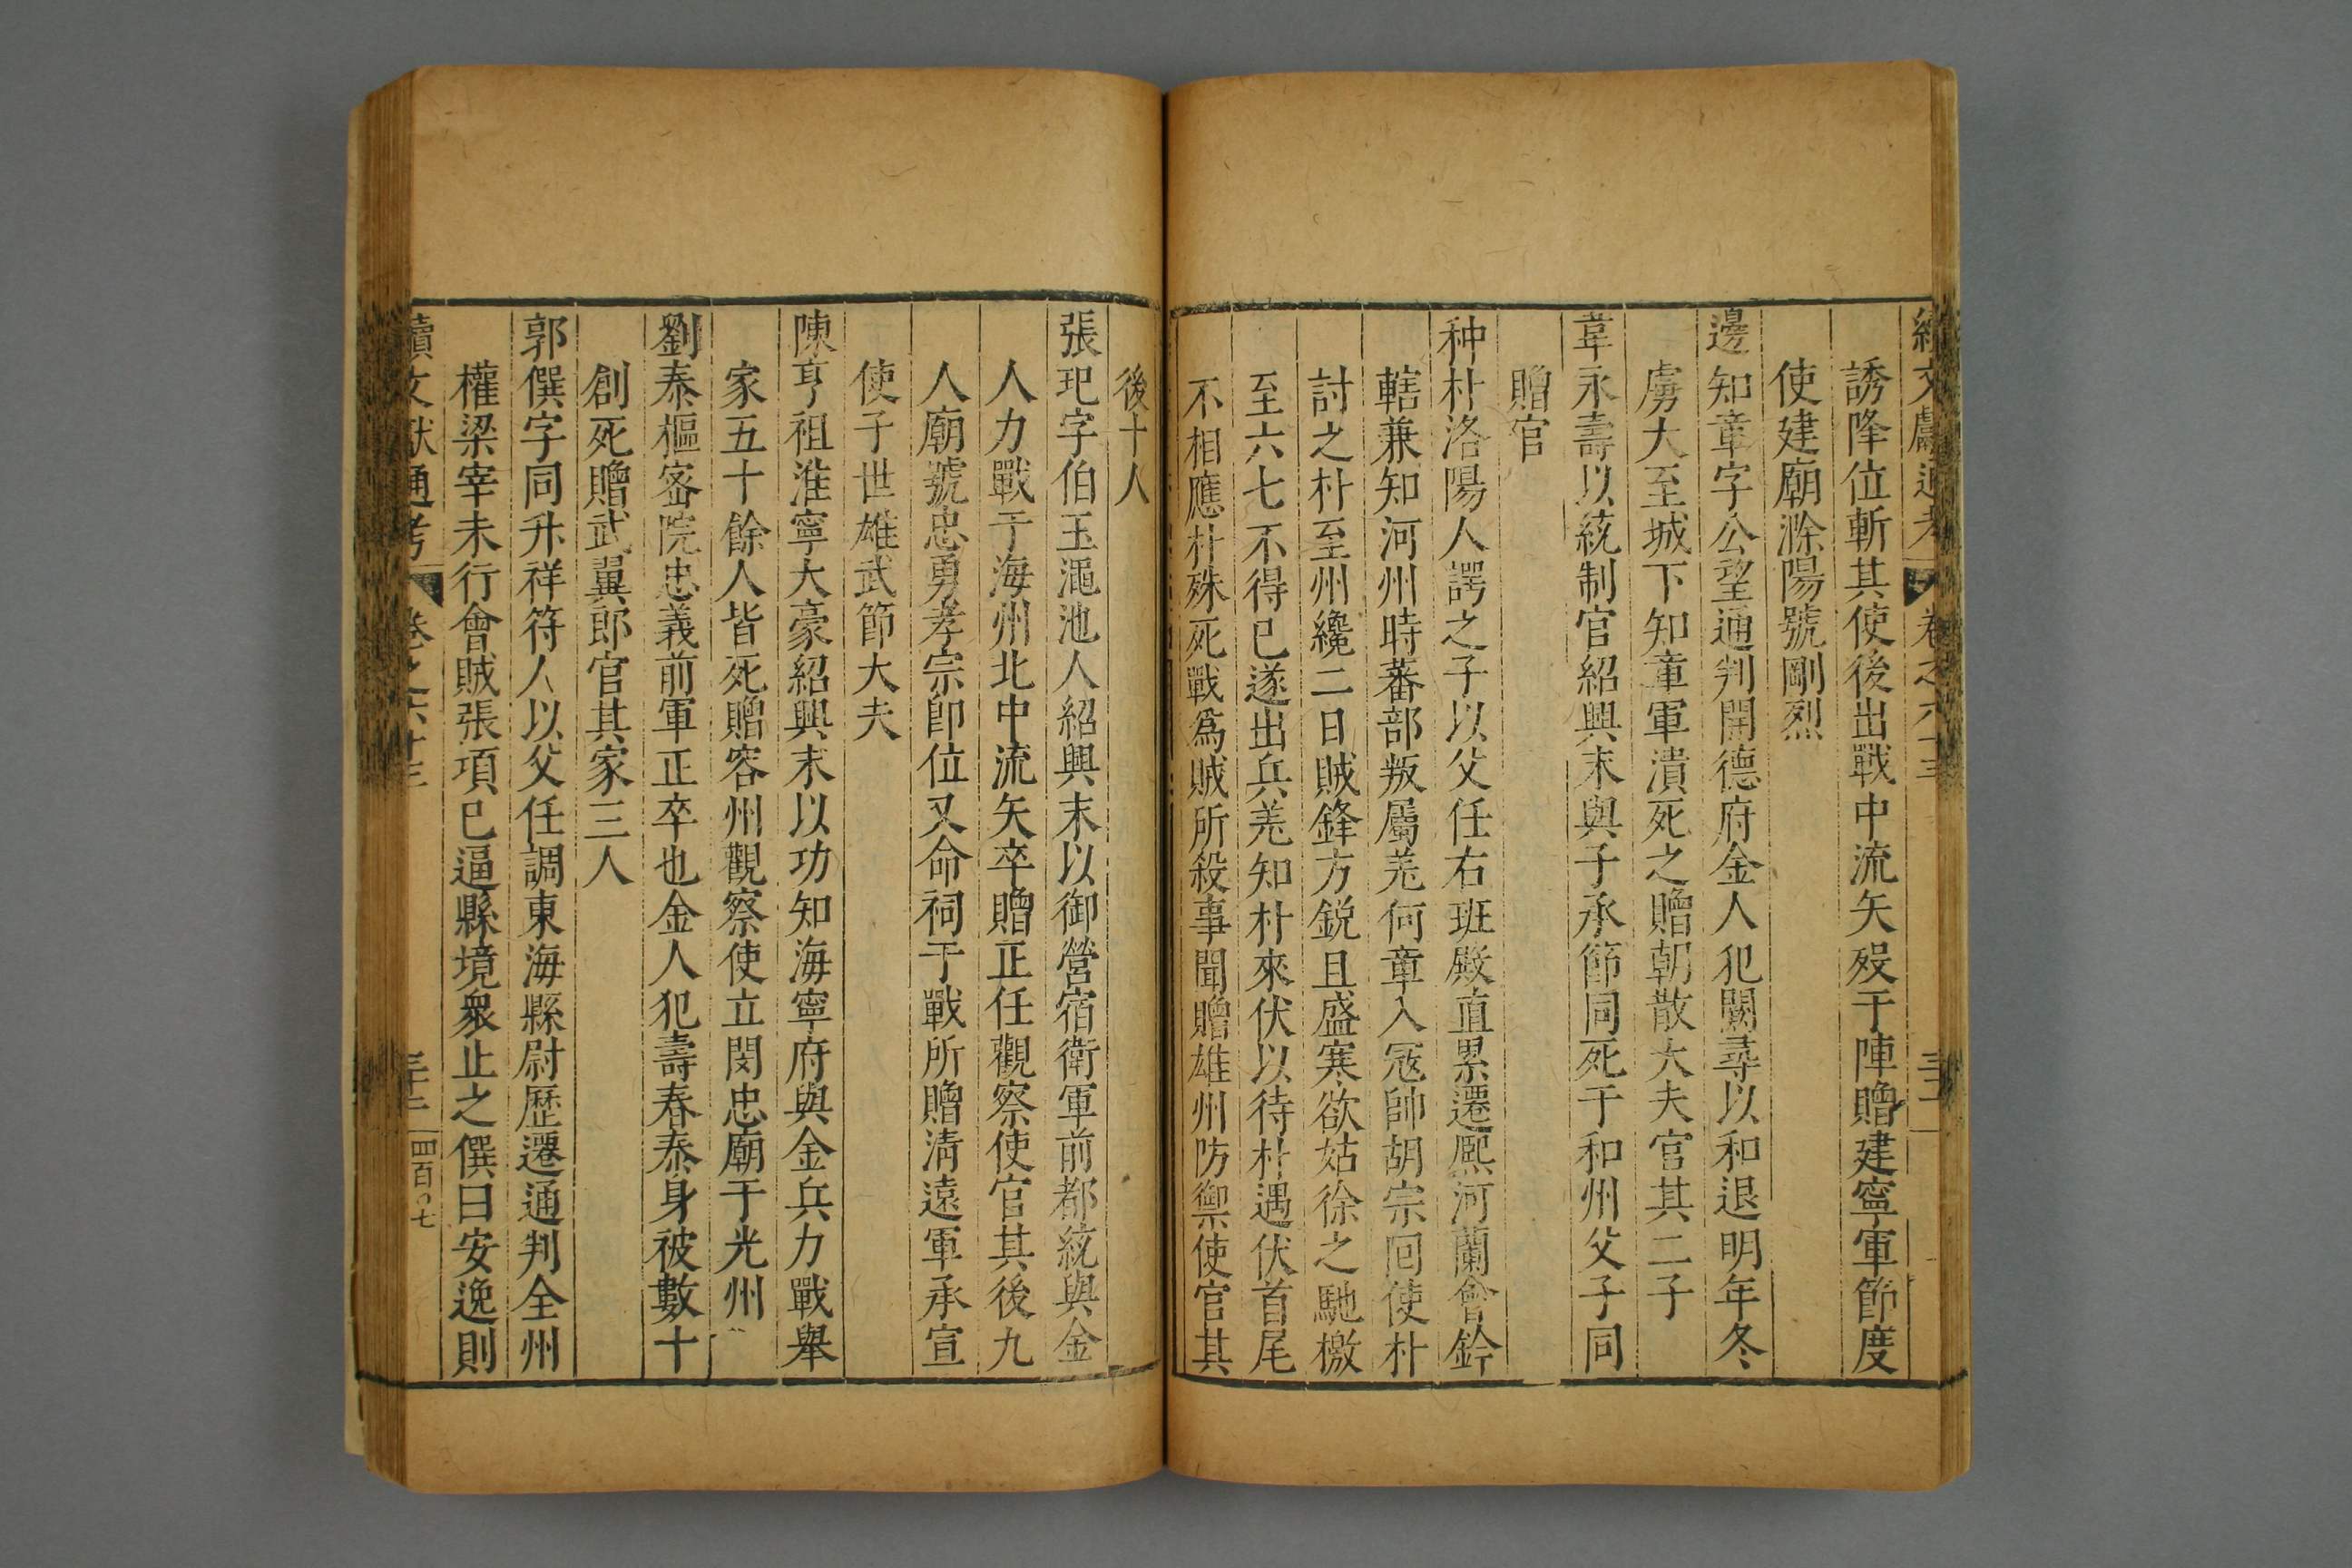 續文獻通考 卷之六十三 三十一
誘降位斬其使後出戰中流矢歿于陣贈建寧軍節度
使建廟滁陽號剛烈
邊知章字公望通判開德府金人犯闕尋以和退明年冬
虜大至城下知章軍潰死之贈朝散大夫官其二子
韋永壽以統制官紹興末與子承節同死于和州父子同
贈官
种朴洛陽人諤之子以父任右班殿直累遷熈河蘭會鈐
轄兼知河州時蕃部叛屬羌何章入冦帥胡宗囘使朴
討之朴至州纔二日賊鋒方銳且盛寒欲姑徐之馳檄
至六七不得已遂出兵羌知朴來伏以待朴遇伏首尾
不相應朴殊死戰爲賊所殺事聞贈雄州防禦使官其
後十人
張玘字伯玉澠池人紹興末以御營宿衛軍前都統與金
人力戰于海州北中流矢卒贈正任觀察使官其後九
人廟號忠勇孝宗卽位又命祠于戰所贈淸遠軍承宣
使子世雄武節大夫
陳亨祖淮寧大豪紹興末以功知海寧府與金兵力戰舉
家五十餘人皆死贈容州觀察使立閔忠廟于光州
劉泰樞密院忠義前軍正卒也金人犯壽春泰身被數十
創死贈武翼郎官其家三人
郭僎字同升祥符人以父任調東海縣尉歷遷通判全州
權梁宰未行會賊張項已逼縣境衆止之僎曰安逸則
續文獻通考 卷之六十三 三十二 四百〇七